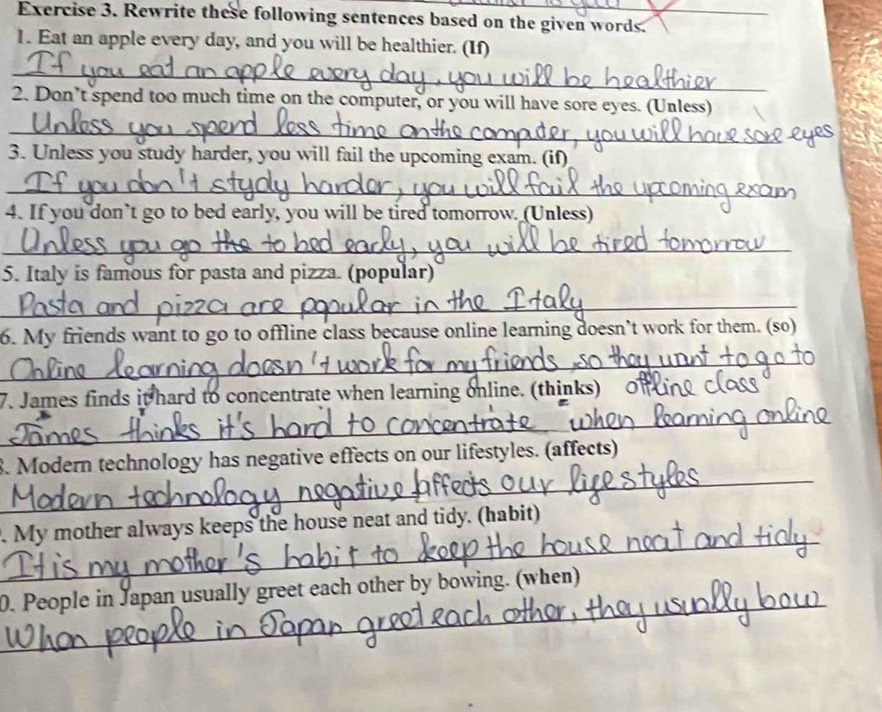 Exercise 3. Rewrite these following sentences based on the given words.
1. Eat an apple every day, and you will be healthier. (If)
If you eat an apple every day, you will be healthier
2. Don't spend too much time on the computer, or you will have sore eyes. (Unless)
Unless you spend less time on the computer, you will have sore eyes
3. Unless you study harder, you will fail the upcoming exam. (if)
If you don't stydy harder, you will fail the upcoming exam
4. If you don't go to bed early, you will be tired tomorrow. (Unless)
Unless you go the to bed early, you will be tired tomorrow
5. Italy is famous for pasta and pizza. (popular)
Pasta and pizza are popular in the Italy
6. My friends want to go to offline class because online learning doesn't work for them. (so)
Online learning doesn't work for my friends, so they want to go to
7. James finds it hard to concentrate when learning online. (thinks) offline class
James thinks it's hard to concentrate when learning online
8. Modern technology has negative effects on our lifestyles. (affects)
Modern technology negative affects our lifestyles
. My mother always keeps the house neat and tidy. (habit)
It is my mother's habit to keep the house neat and tidy
0. People in Japan usually greet each other by bowing. (when)
When people in Japan greet each other, they usually bow